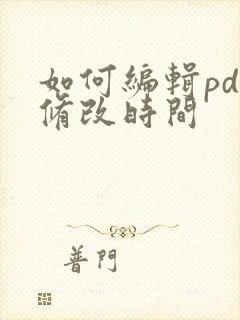 如何編輯pd
脩改時間
普門